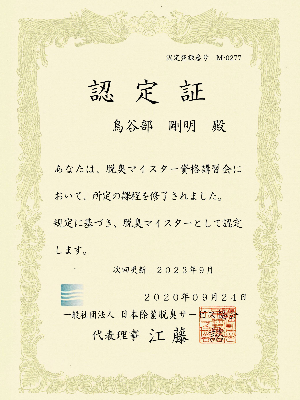 認定登録番号 M-0277
認定証
鳥谷部 剛明 殿
あなたは、脱臭マイスター資格講習会に
おいて、所定の課程を修了されました。
規定に基づき、脱臭マイスターとして認定
します。
次回更新 2023年9月
2020年09月24日
一般社団法人 日本除菌脱臭サービス協会
代表理事 江藤